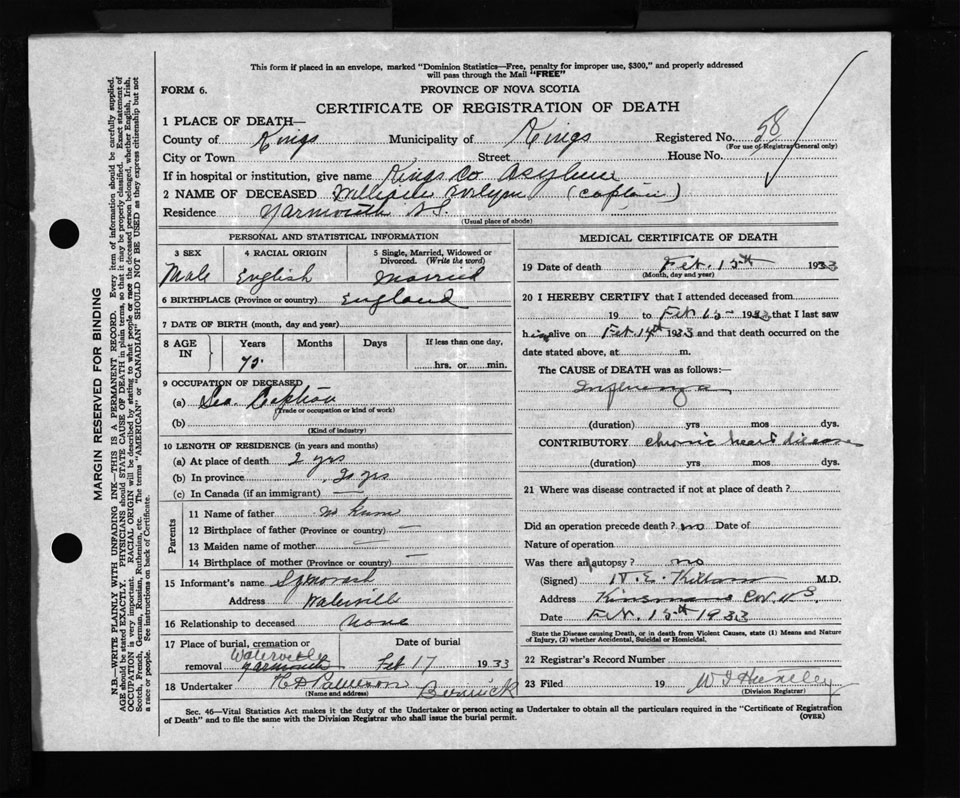 This form if placed in an envelope, marked "Dominion Statistics—Free, penalty for improper use, $300," and properly addressed
will pass through the Mail "FREE"
FORM 6.
PROVINCE OF NOVA SCOTIA
CERTIFICATE OF REGISTRATION OF DEATH
1 PLACE OF DEATH—
County of Kings Municipality of Kings Registered No. 58
(For use of Registrar General only)
City or Town Street House No.
If in hospital or institution, give name Kings Co Asylum
2 NAME OF DECEASED (Captain)
Residence Yarmouth N.S.
(Usual place of abode)
PERSONAL AND STATISTICAL INFORMATION
3 SEX 4 RACIAL ORIGIN 5 Single, Married, Widowed or Divorced. (Write the word)
Male English Married
6 BIRTHPLACE (Province or country) England
7 DATE OF BIRTH (month, day and year)
8 AGE IN Years Months Days If less than one day,
75 hrs. or min.
9 OCCUPATION OF DECEASED
(a) Sea Captain
(Trade or occupation or kind of work)
(b)
(Kind of industry)
10 LENGTH OF RESIDENCE (in years and months)
(a) At place of death 2 yrs
(b) In province 20 yrs
(c) In Canada (if an immigrant) —
Parents
11 Name of father
12 Birthplace of father (Province or country) —
13 Maiden name of mother —
14 Birthplace of mother (Province or country) —
15 Informant's name
Address Waterville
16 Relationship to deceased None
17 Place of burial, cremation or removal Date of burial
Waterville
Yarmouth Feb 17 1933
18 Undertaker H D Patterson Berwick
(Name and address)
MEDICAL CERTIFICATE OF DEATH
19 Date of death Feb. 15th 1933
(Month, day and year)
20 I HEREBY CERTIFY that I attended deceased from
19 to Feb 15 - 1933 that I last saw
him alive on Feb 14th 1933 and that death occurred on the
date stated above, at m.
The CAUSE of DEATH was as follows:
Influenza
(duration) yrs mos dys.
CONTRIBUTORY chronic heart disease
(duration) yrs mos dys.
21 Where was disease contracted if not at place of death?
Did an operation precede death? no Date of
Nature of operation
Was there an autopsy? no
(Signed) M.D.
Address
Date Feb. 15th 1933
State the Disease causing Death, or in death from Violent Causes, state (1) Means and Nature
of Injury, (2) whether Accidental, Suicidal or Homicidal.
22 Registrar's Record Number
23 Filed 19
(Division Registrar)
Sec. 46—Vital Statistics Act makes it the duty of the Undertaker or person acting as Undertaker to obtain all the particulars required in the "Certificate of Registration
of Death" and to file the same with the Division Registrar who shall issue the burial permit. (OVER)
MARGIN RESERVED FOR BINDING
N.B.—WRITE PLAINLY WITH UNFADING INK—THIS IS A PERMANENT RECORD. Every item of information should be carefully supplied.
AGE should be stated EXACTLY. PHYSICIANS should STATE CAUSE OF DEATH in plain terms, so that it may be properly classified. Exact statement of
OCCUPATION is very important. RACIAL ORIGIN will be described by stating to what people or race the deceased person belonged, whether English, Irish,
Scotch, French, German, Russian, Ruthenian, etc. The terms "AMERICAN" or "CANADIAN" SHOULD NOT BE USED as they express citizenship but not
a race or people. See instructions on back of Certificate.